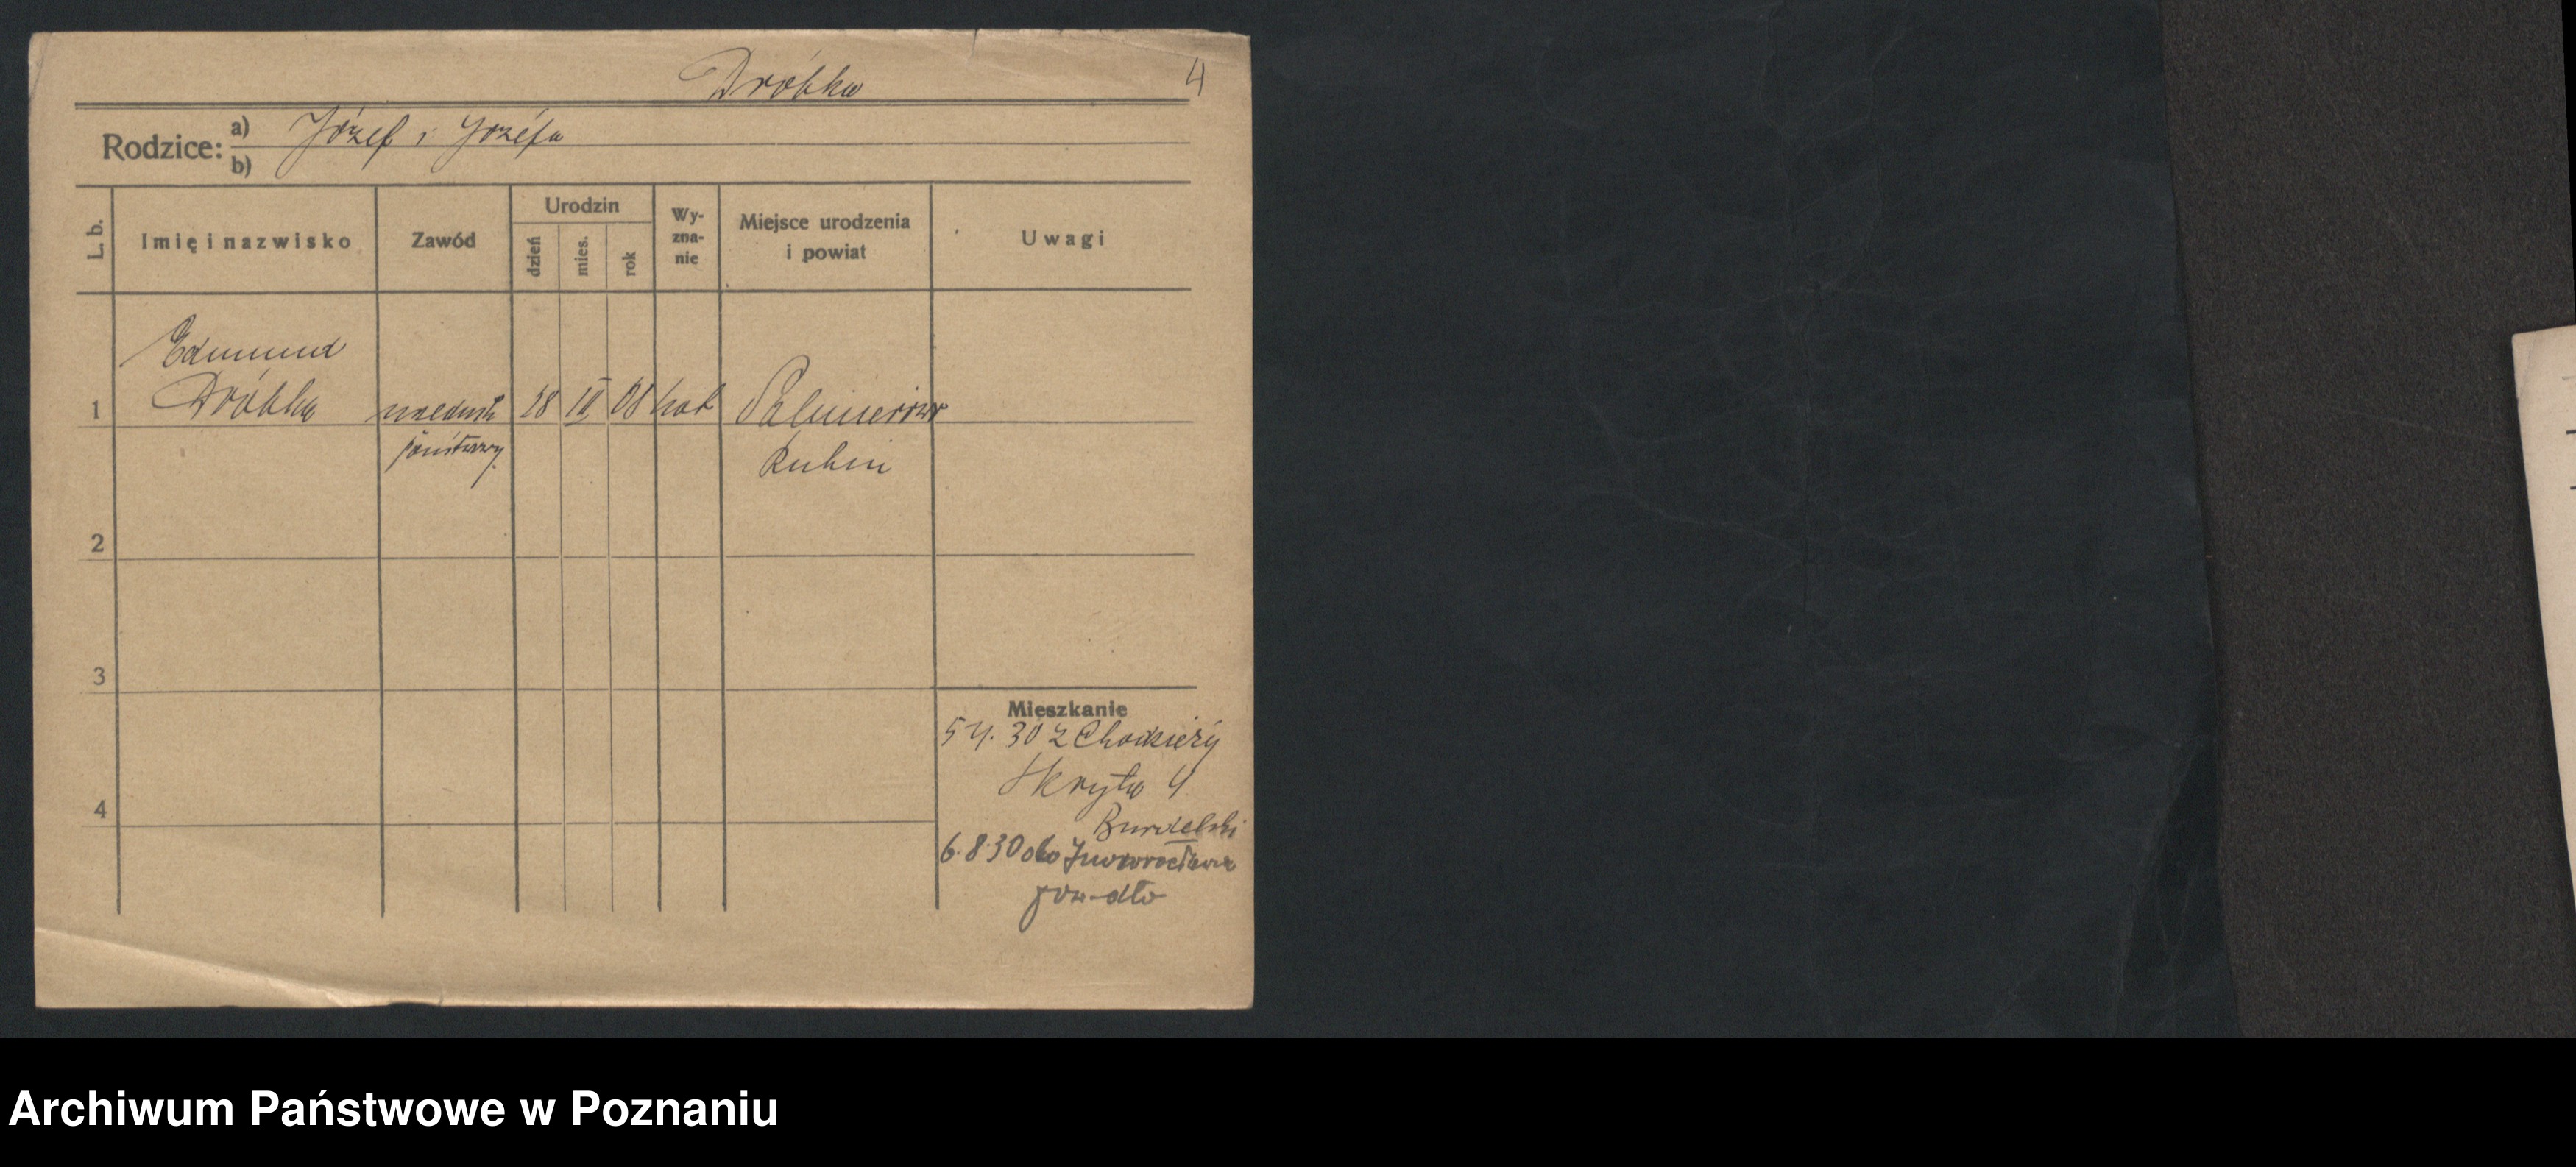 Dróbka 4
Rodzice: a) Józef i Józefa
b)
L. b. Imię i nazwisko Zawód Urodzin dzień mies. rok Wy-zna-nie Miejsce urodzenia i powiat Uwagi
Edmund
1 Dróbka 28 III 08 kat
Rubin
2
3
4
Mieszkanie
5 4. 30 z Chodzieży
Skryta 4
Burdelski
6.8.30 do Inowrocławia
Archiwum Państwowe w Poznaniu